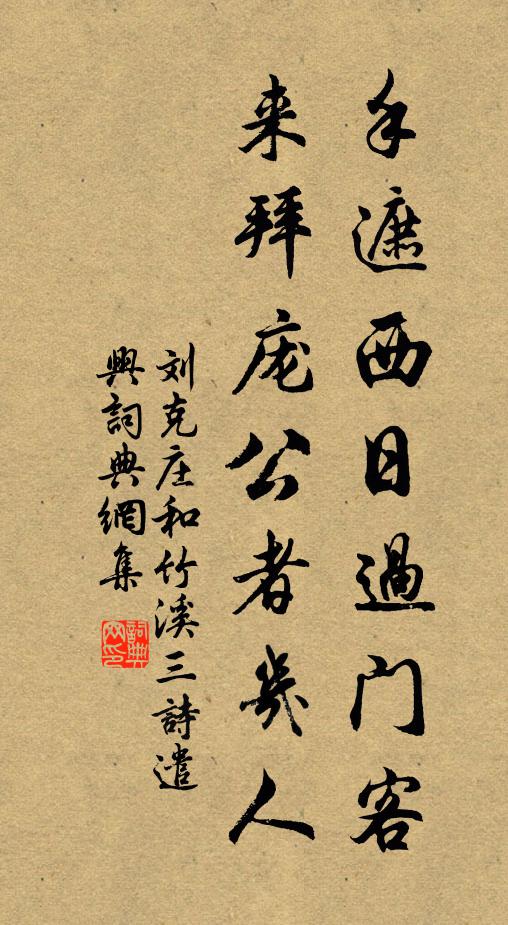 手遮西日過门客
来拜庞公者幾人
刘克庄和竹溪三詩遣
興詞典網集
詞典网印